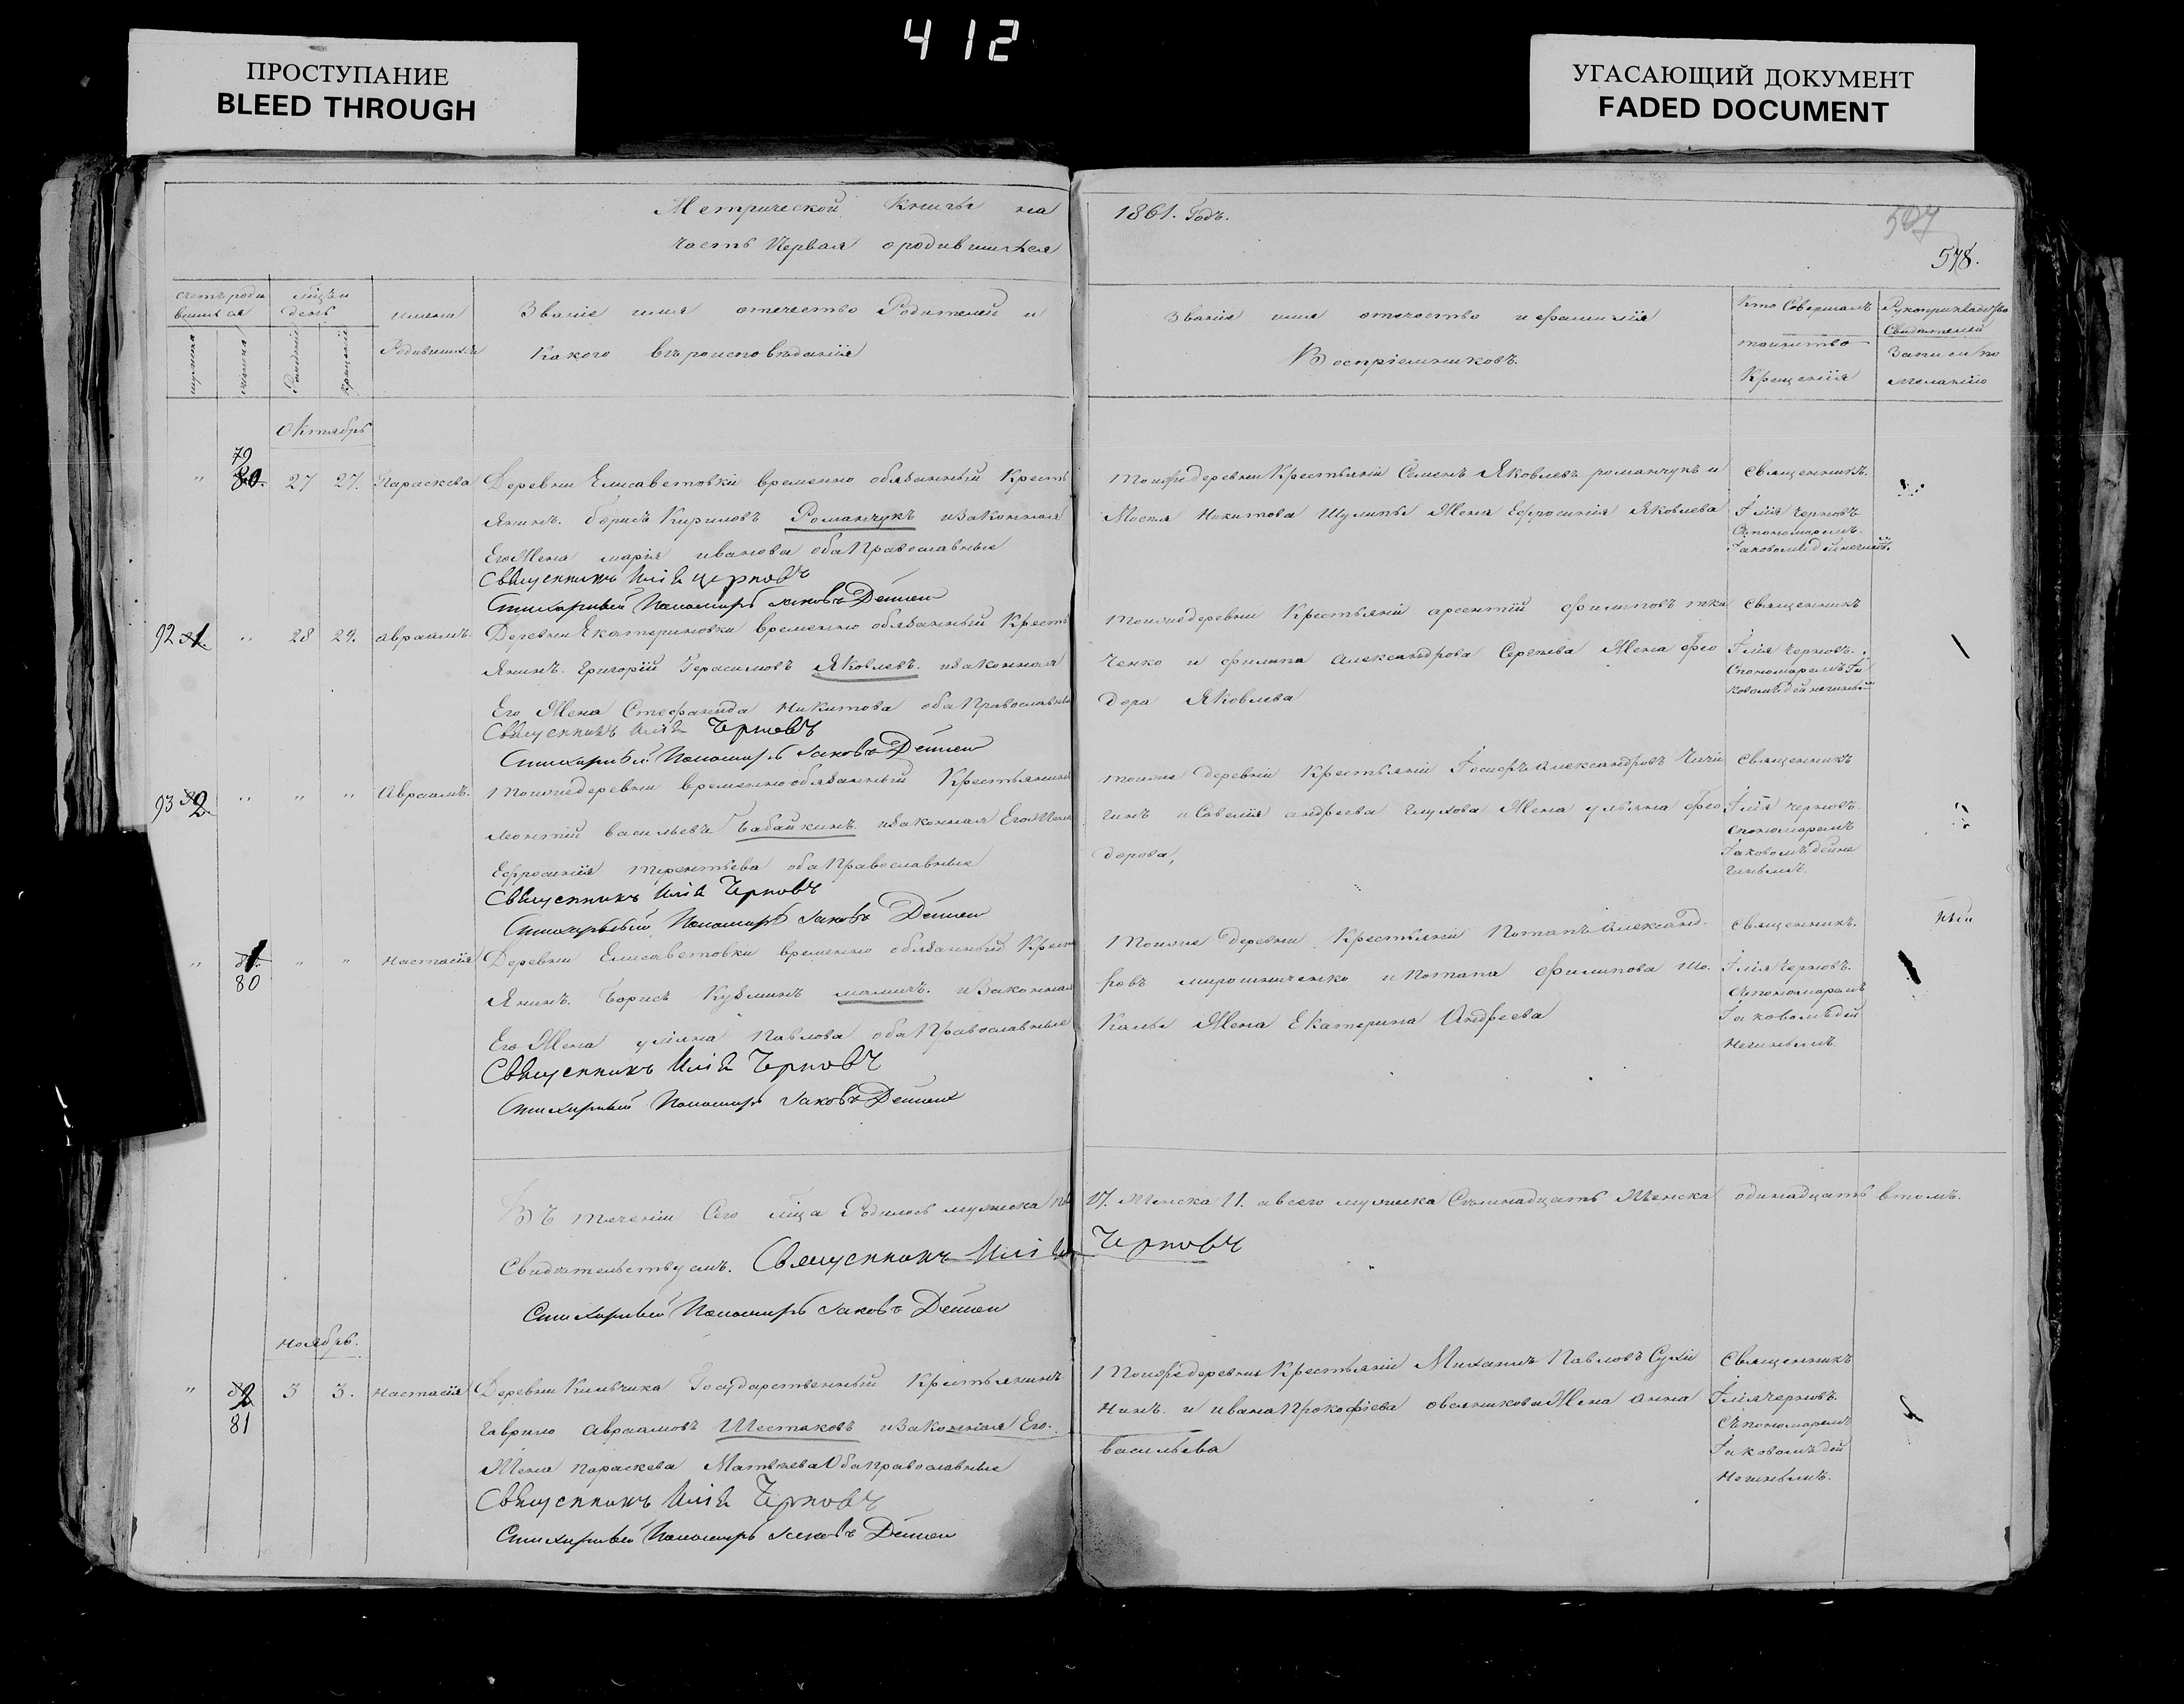 412
ПРОСТУПАНИЕ
BLEED THROUGH
УГАСАЮЩИЙ ДОКУМЕНТ
FADED DOCUMENT
Метрической Книги на
часть Первая о родившихся
1861. Годъ.
507
578.
счетъ роди
вшихся
мужеска
женска
мѣсяцъ и
день
Рожденія
крещенія
имена
Родившихся
Званіе имя отчество Родителей и
Какого вѣроисповѣданія
Званіе имя отчество и фамилія
Воспріемниковъ.
Кто Совершалъ
таинство
Крещенія
Рукоприкладство
Свидѣтелей
Записи по
желанію
Октябрь
79
80.
27 27. Параскева
Деревни Елисаветовки временно обязанный Кресть
янинъ. борисъ Кириловъ Романчукъ и Законная
Его Жена марія иванова оба Православные
Священникъ Илія Черновъ
Стихарный Пономарь Іаковъ
Тойже деревни Крестьяній Семенъ Яковлевъ романчукъ и
Никитова Жена Ефросинія Яковлева
Священникъ.
Ілія Черновъ
Съ пономаремъ
92 28 29. авраамъ.
Деревни Екатериновки временно обязанный Кресть
янинъ. Григорій Герасимовъ Яковлевъ. и законная
Его Жена Стефанида Никитова оба Православные
Священникъ Илія Черновъ
Стихарный Пономарь Іаковъ
Тойже деревни Крестьяній арсентій филиповъ тка
ченко и филипа александрова Сергѣева Жена Фео
дора Яковлева
Священникъ
Ілія Черновъ.
93 Авраамъ.
Тойже деревни временно обязанный Крестьянинъ
леонтій васильевъ бабайкинъ. и законная Его Жена
Ефросинія терентьева оба Православные
Священникъ Илія Черновъ
Стихарный Пономарь Іаковъ
тойже деревній Крестьяній Іосифъ александровъ Чичи
гинъ и Савелія андреева глухова Жена ульяна Фео
дорова,
Священникъ
Ілія черновъ.
Спономаремъ
80
Настасія
Деревни Елисаветовки временно обязанный Кресть
янинъ. Борисъ Кузминъ и Законная
Его Жена уліяна Павлова оба Православные
Священникъ Илія Черновъ
Стихарный Пономарь Іаковъ
Тойже Деревни Крестьяній Потапъ Александ
ровъ мирошниченко и Потапа Филипова Шо.
Калы Жена Екатерина Андреева
Священникъ.
Ілія Черновъ.
Съ пономаремъ
Въ теченіи Сего мѣсяца Родилось мужеска
17. Женска 11. а всего мужеска Семнадцать Женска одинадцать втомъ.
Свидѣтельствуемъ. Священникъ Илія Черновъ
Стихарный Пономарь Іаковъ
Ноябрь.
81
3 3. Настасія
Деревни Кильчика Государственный Крестьянинъ
гаврило авраамовъ Шестаковъ и Законная Его.
Жена параскева Матвѣева Оба православные
Священникъ Илія Черновъ
Стихарный Пономарь Іаковъ
Тойже деревни Крестьяній Михаилъ Павловъ Сухи
нинъ. и ивана Прокофіева овсяникова Жена анна
васильева
Священникъ
Ілія Черновъ.
Съ пономаремъ